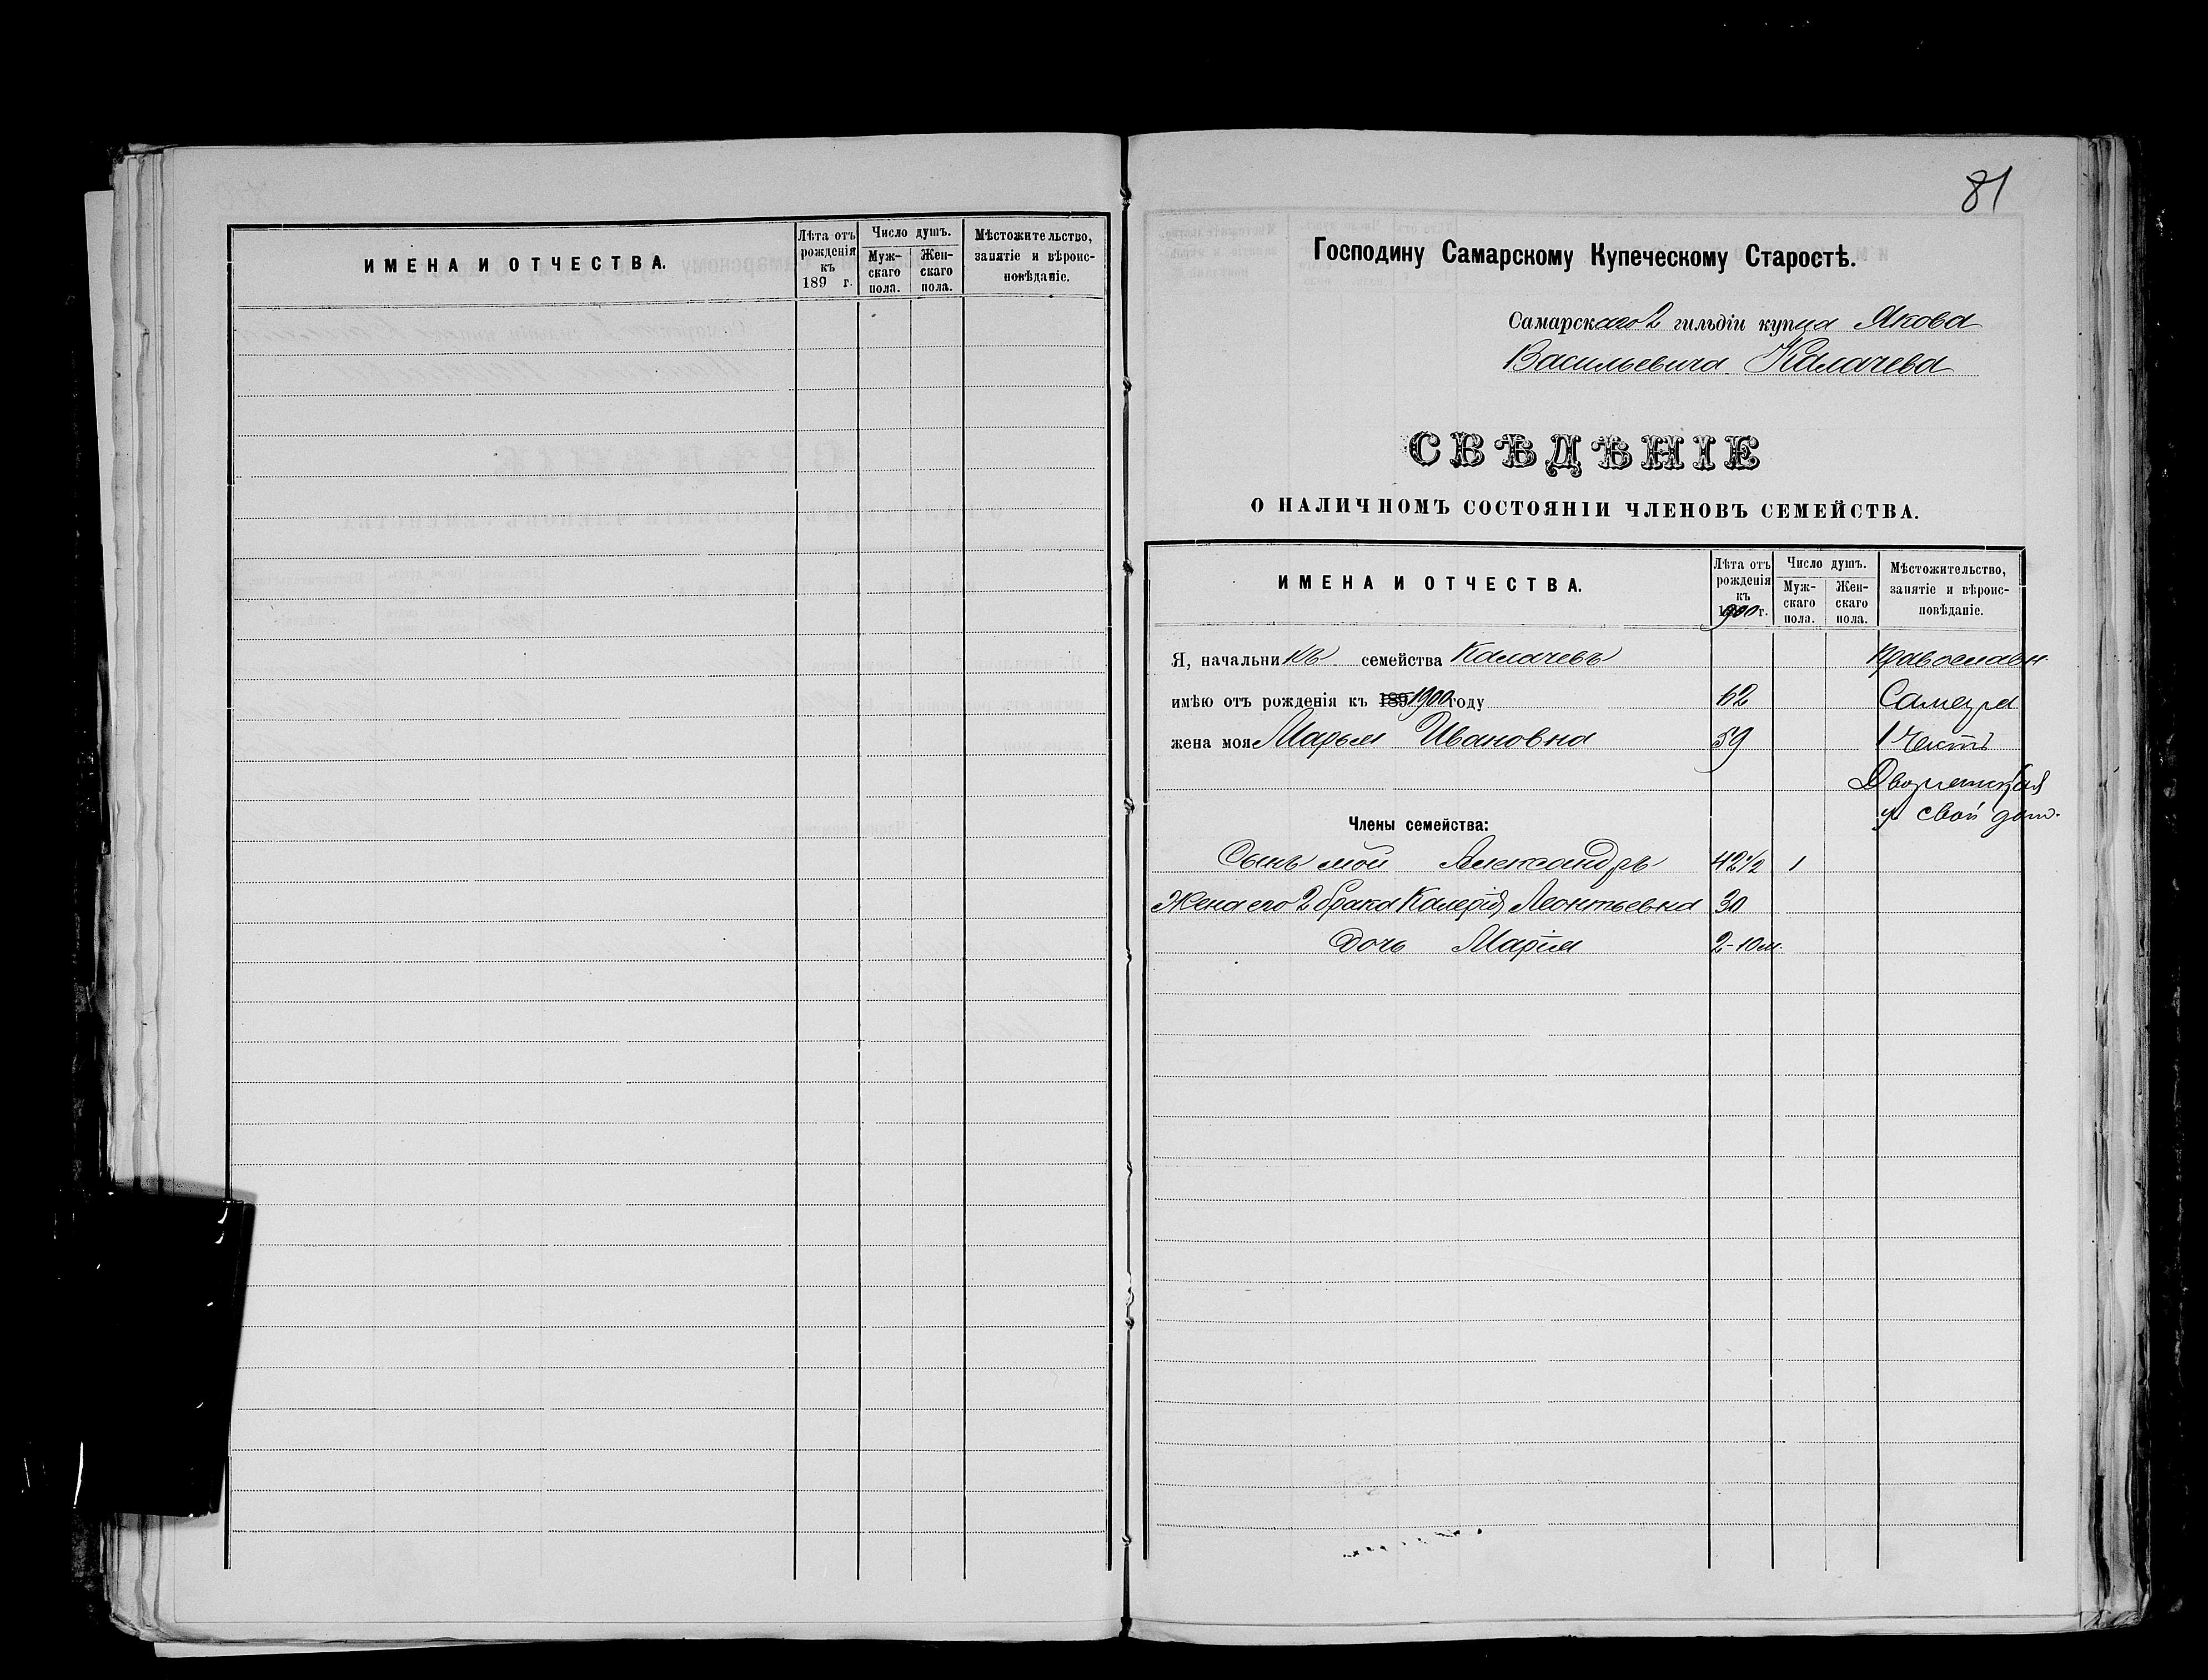 ИМЕНА И ОТЧЕСТВА.
Лѣта отъ рожденія къ 189 г.
Число душъ.
Мужскаго пола.
Женскаго пола.
Мѣстожительство, занятіе и вѣроисповѣданіе.
81
Господину Самарскому Купеческому Старостѣ.
Самарскаго 2 гильдіи купца Якова
Васильевича Калачева
СВѢДѢНІЕ
О НАЛИЧНОМЪ СОСТОЯНІИ ЧЛЕНОВЪ СЕМЕЙСТВА.
ИМЕНА И ОТЧЕСТВА.
Лѣта отъ рожденія къ 1900 г.
Число душъ.
Мужскаго пола.
Женскаго пола.
Мѣстожительство, занятіе и вѣроисповѣданіе.
Я, начальникъ семейства Калачевъ Православн
имѣю отъ рожденія къ 189 1900 году 62 Самара
жена моя Марья Ивановна 59 1 часть
Дворянская
Члены семейства: свой дом.
Сынъ мой Александръ 42 1/2 1
Жена его 2 брака Калерія Леонтьевна 30
Дочь Марія 2-10 м.